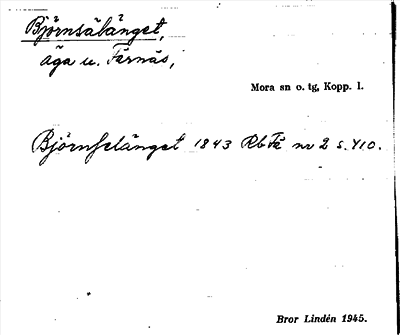 Björnsälänget,
äga u. Färnäs,
Mora sn o. tg, Kopp. l.
Björnselänget 1843 Rb Fä nr 2 s. 410.
Bror Lindén 1945.